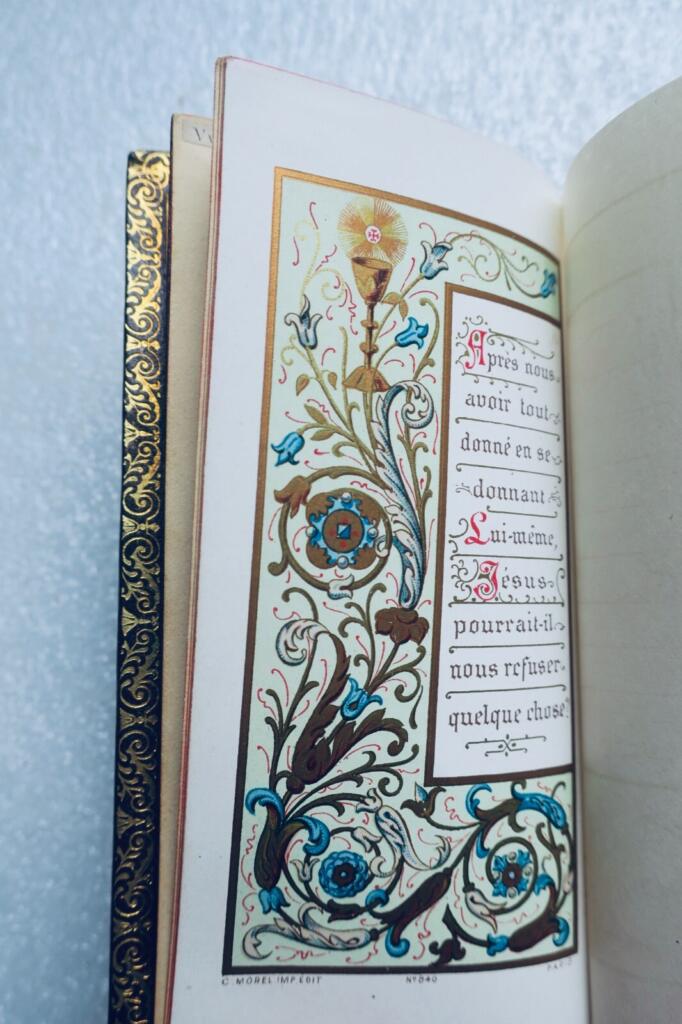 Après nous
avoir tout
donné en se
donnant
Lui-même,
Jésus
pourrait-il
nous refuser
quelque chose?
C. MOREL IMP. EDIT
No 840
PARIS